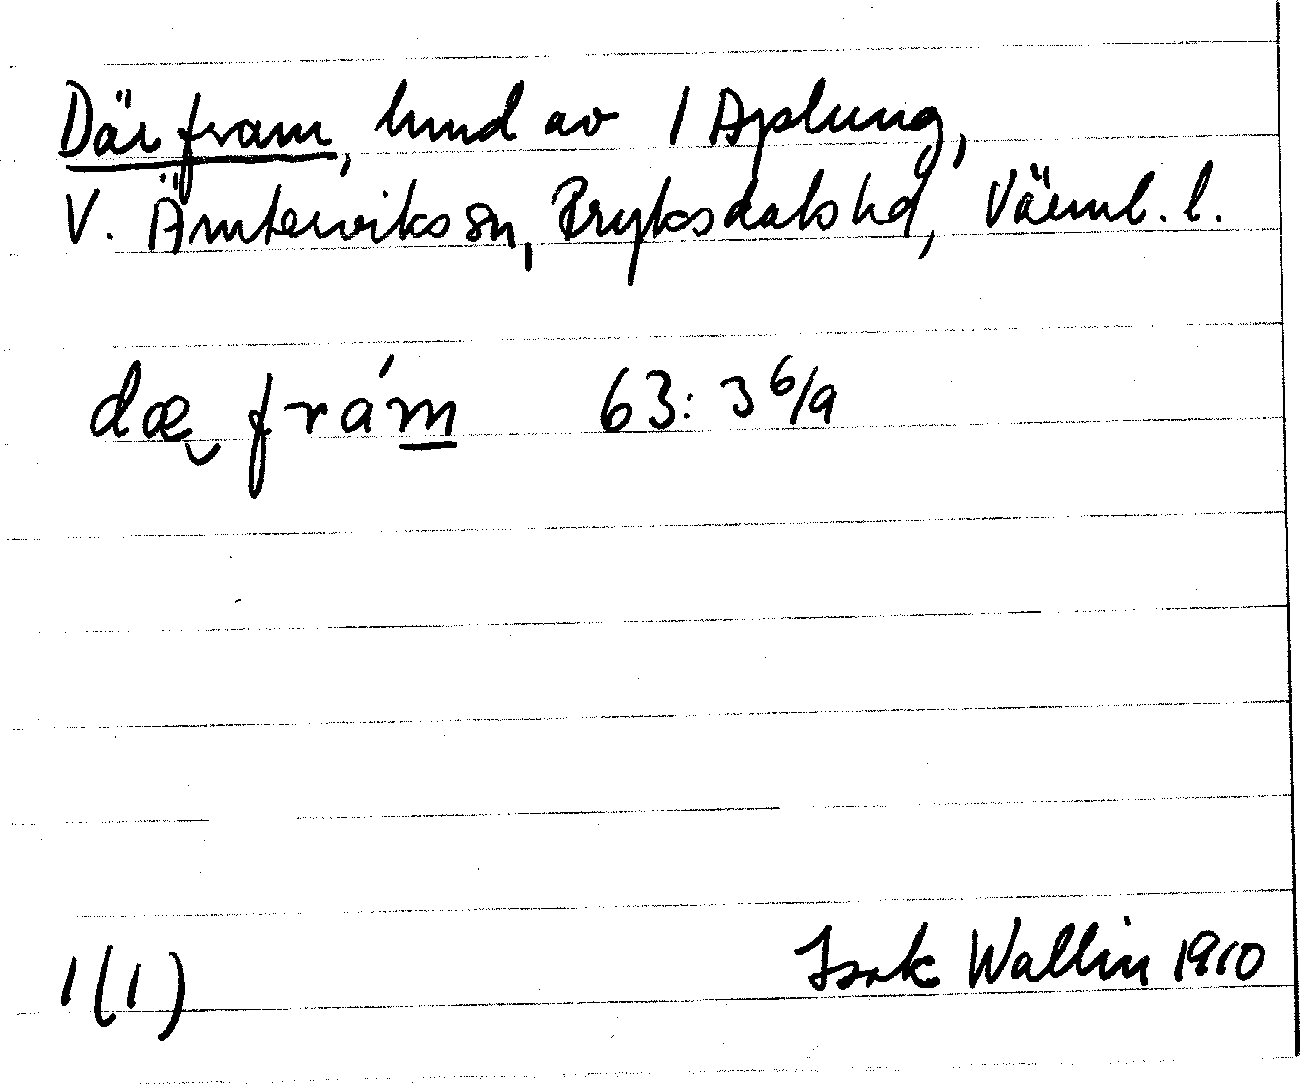 Där fram, hmd av 1 Aplung,
V. Ämterviks sn, Fryksdals hd, Värml. l.
dæ frám 63: 3 6/9
1(1) Isak Wallin 1910